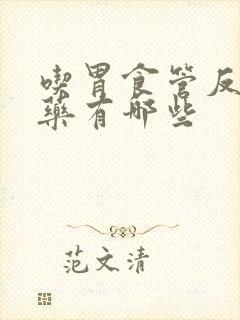 喫胃食管反
藥有哪些
范文清